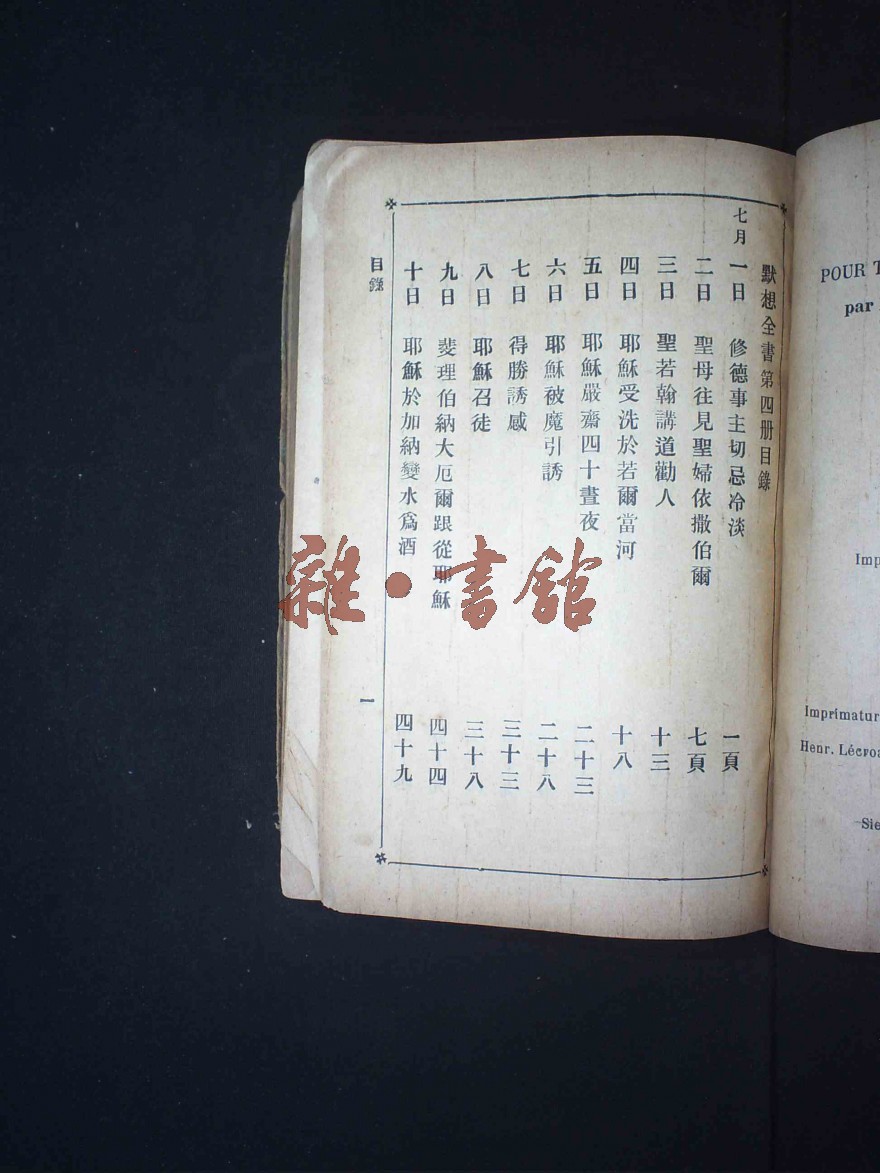 默想全書第四册目錄
七月 一日 修德事主切忌冷淡 一頁
二日 聖母往見聖婦依撒伯爾 七頁
三日 聖若翰講道勸人 十三
四日 耶穌受洗於若爾當河 十八
五日 耶穌嚴齋四十晝夜 二十三
六日 耶穌被魔引誘 二十八
七日 得勝誘感 三十三
八日 耶穌召徒 三十八
九日 斐理伯納大厄爾跟從耶穌 四十四
十日 耶穌於加納變水爲酒 四十九
目錄 一
雜·書館
POUR T
par
Imp
Imprimatur
Henr. Lécroa
Sie